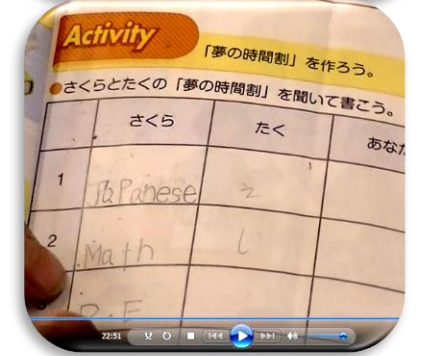 Activity
「夢の時間割」を作ろう。
●さくらとたくの「夢の時間割」を聞いて書こう。
さくら たく
1 Japanese
2 Math
P.E
22:51